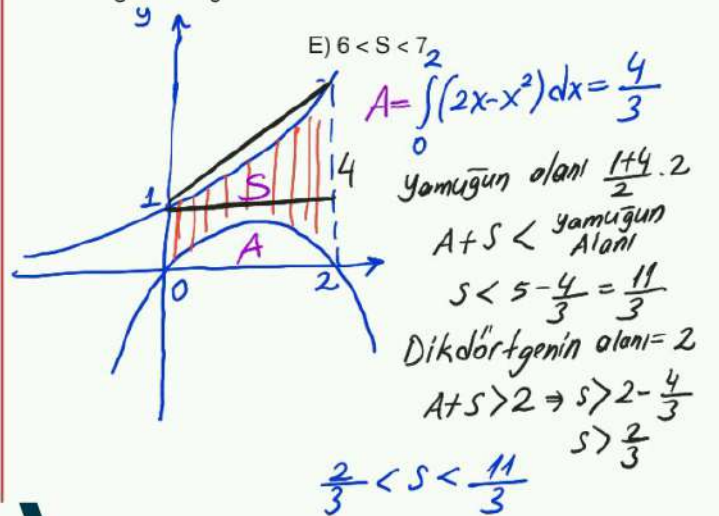 y
E) 6 < S < 7
A = ∫₀² (2x-x²) dx = 4/3
Yamuğun alanı (1+4)/2 . 2
A+S < Yamuğun Alanı
S < 5 - 4/3 = 11/3
Dikdörtgenin alanı = 2
A+S > 2 ⇒ S > 2 - 4/3
S > 2/3
2/3 < S < 11/3
1
S
4
A
0
2